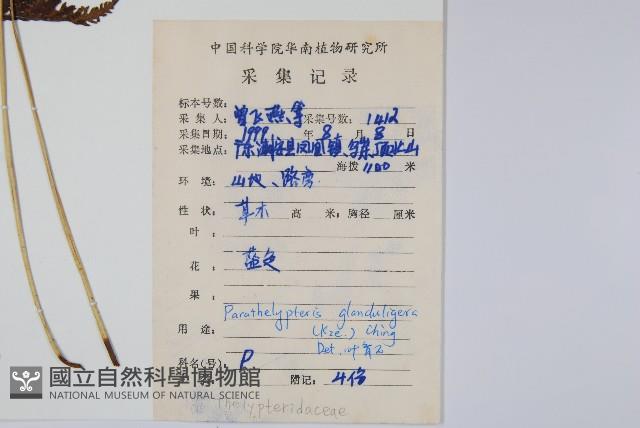 中国科学院华南植物研究所
采集记录
标本号数:
采集人: 曾飞燕等 采集号数: 1412
采集日期: 1999 年 8 月 8 日
采集地点: 广东潮安县凤凰镇
海拨 1100 米
环境: 山地、路旁
性状: 草本 高 米; 胸径 厘米
叶:
花: 蓝色
果:
Parathelypteris glanduligera
(Kze.) Ching
用途:
Det. 叶育石
科名(号): P
附记: 4份
Thelypteridaceae
國立自然科學博物館
NATIONAL MUSEUM OF NATURAL SCIENCE